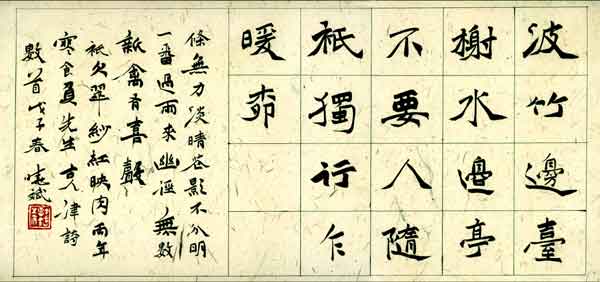 波竹邊臺
榭水邊亭
不要人隨
祇獨行乍
暖
條無力淡晴花影不分明
一番過雨來幽逕無數
新禽有喜聲
祇欠翠紗紅映肉兩年
寒食負先生 律詩
數首戊子春曉斌